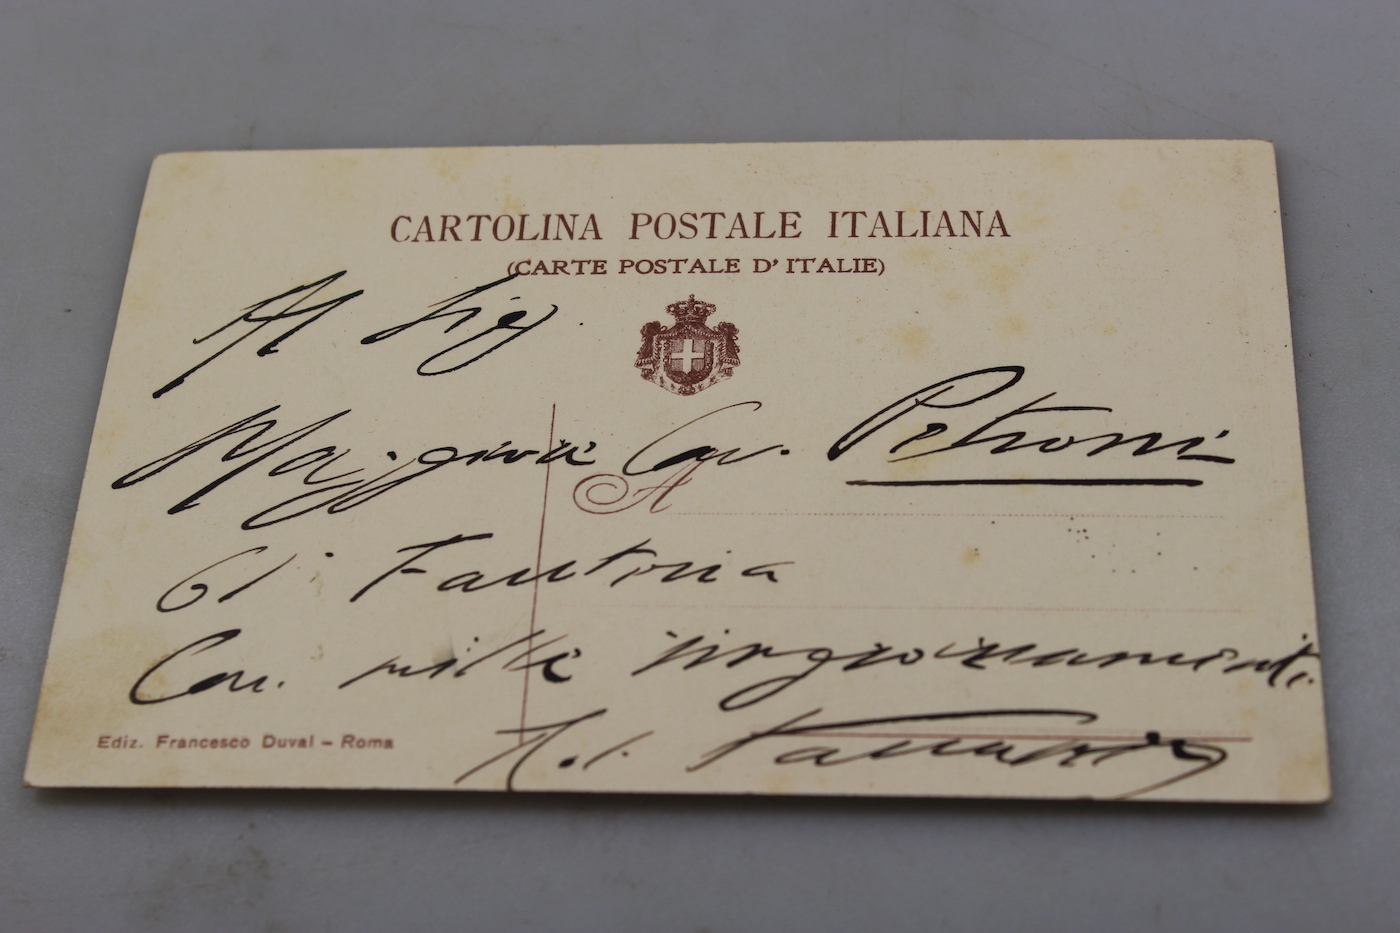 CARTOLINA POSTALE ITALIANA
(CARTE POSTALE D'ITALIE)
Al Sig.
Maggiore Cav. Petroni
A
61° Fanteria
Con mille ringraziamenti
Ediz. Francesco Duval - Roma